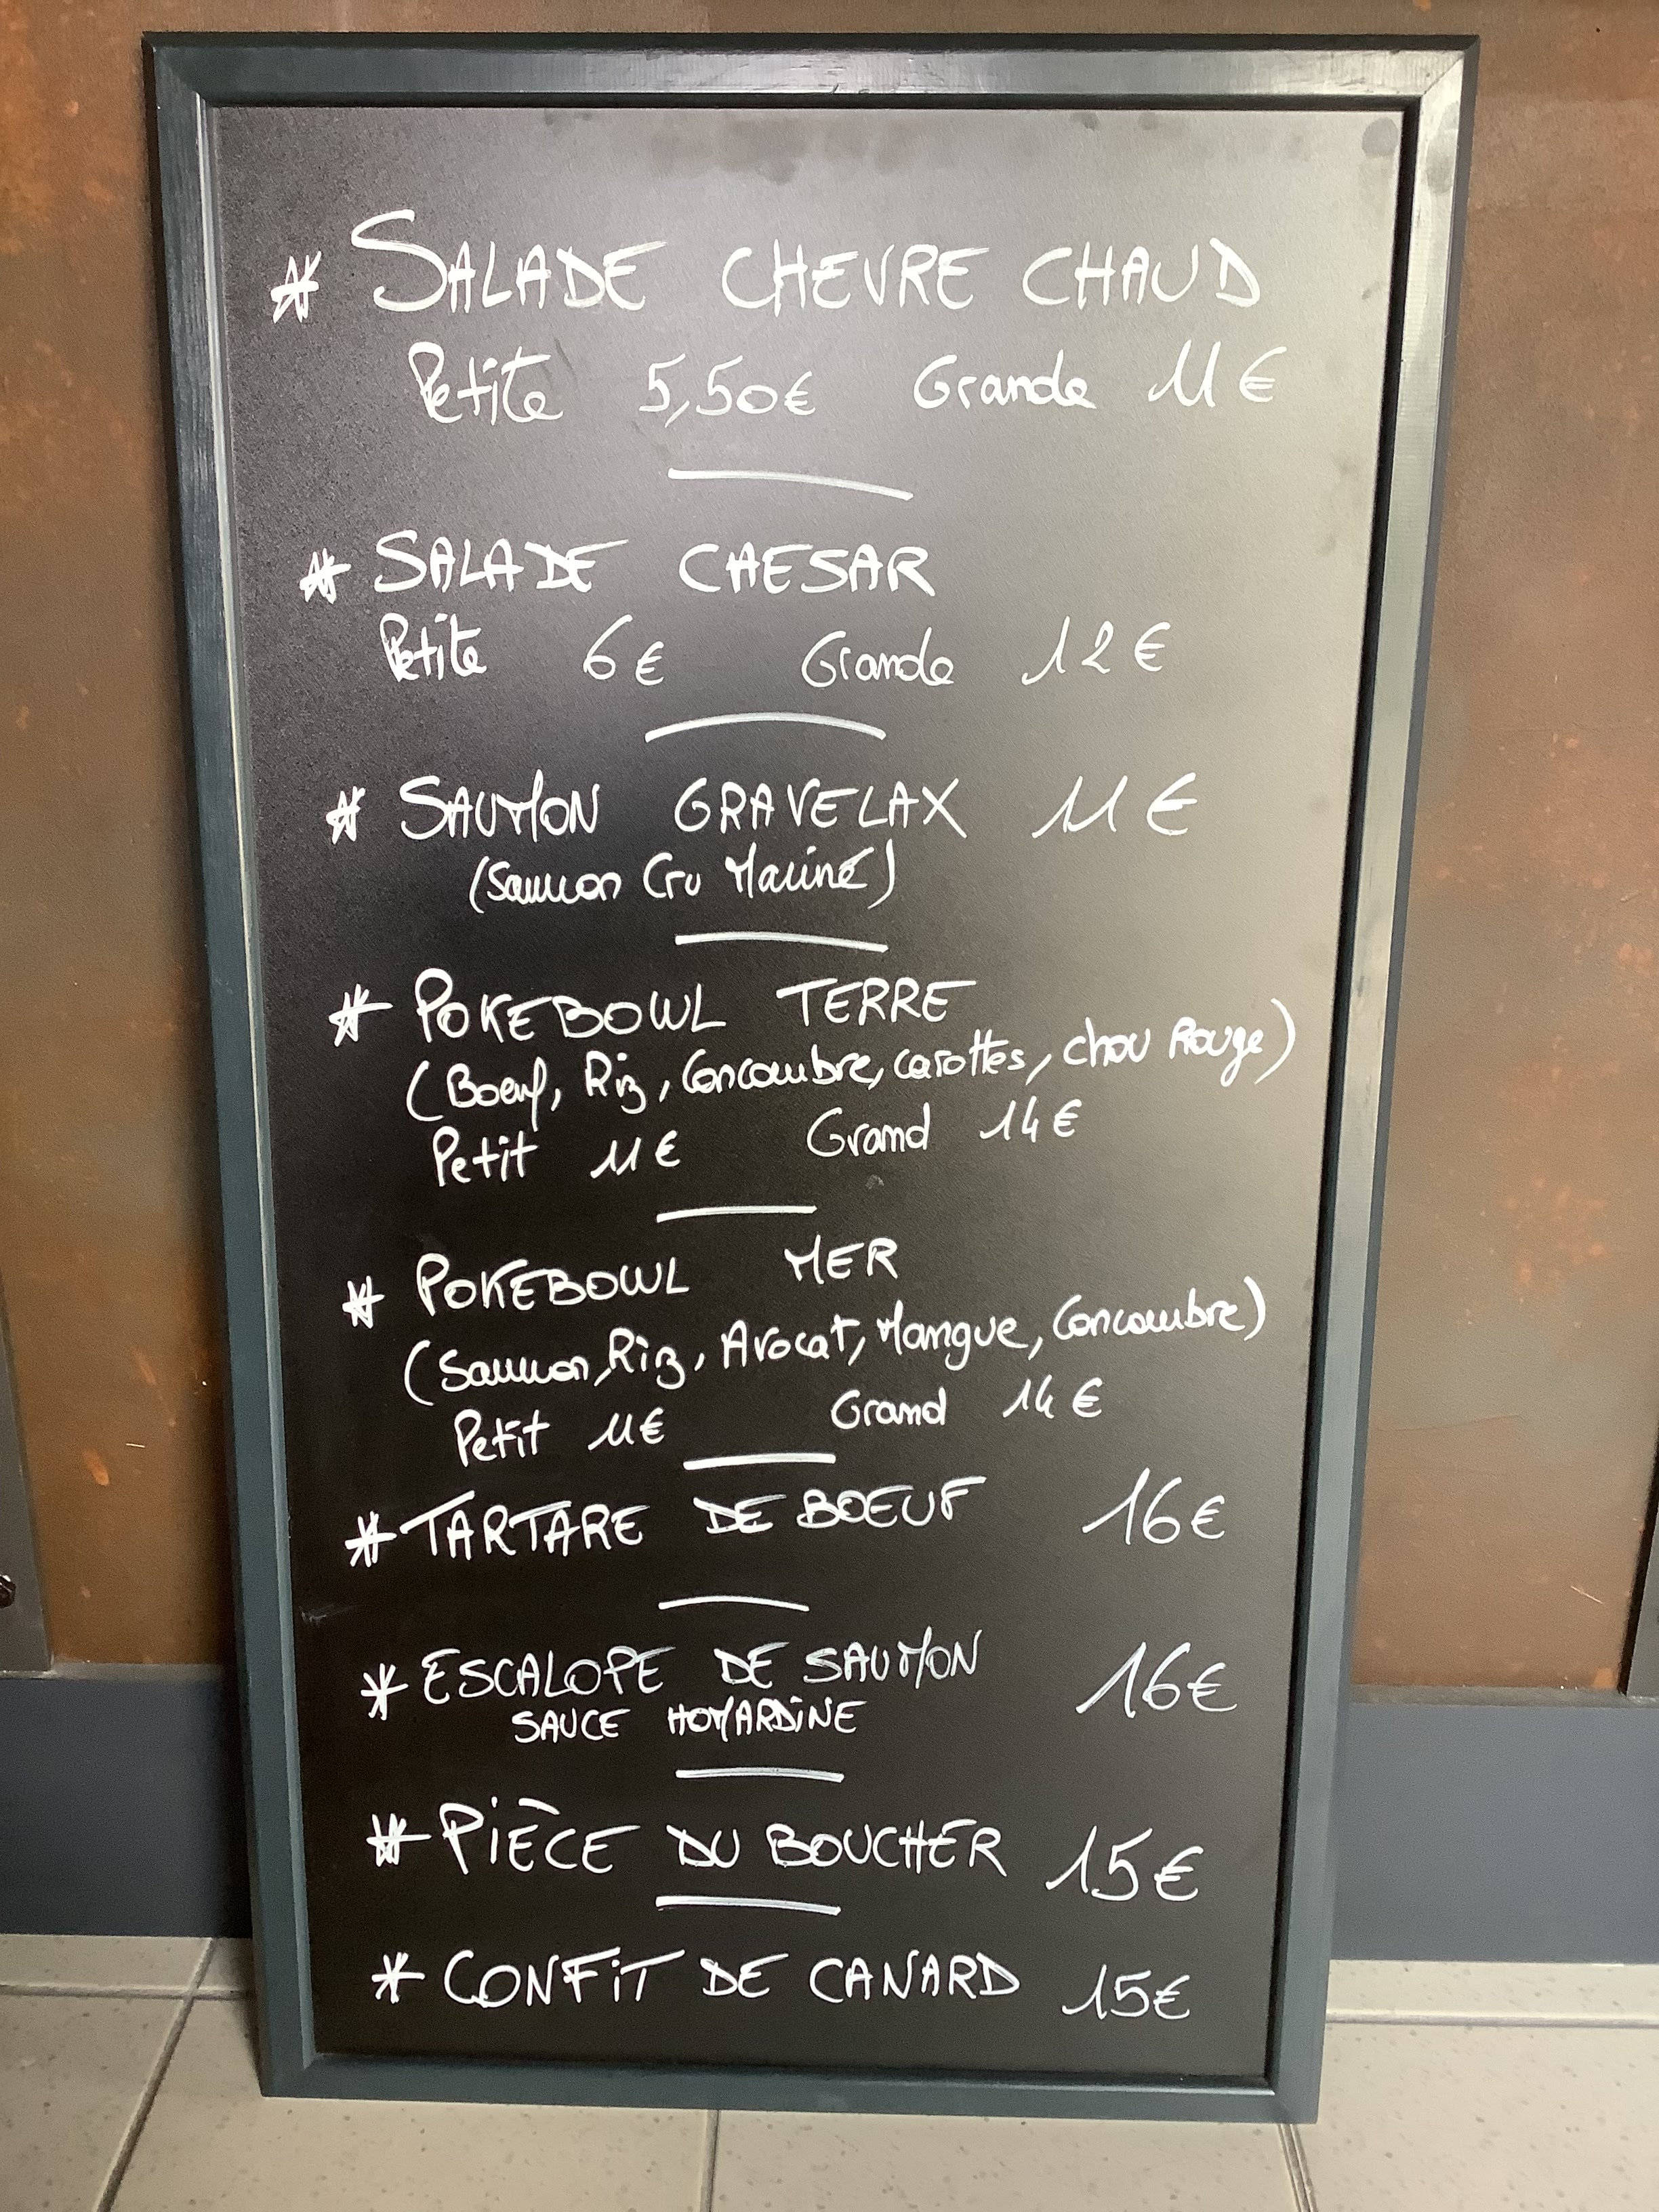 * SALADE CHEVRE CHAUD
Petite 5,50€ Grande 11€
* SALADE CHAESAR
Petite 6€ Grande 12€
* SAUMON GRAVELAX 11€
(Saumon Cru Mariné)
* POKEBOWL TERRE
(Boeuf, Riz, Concombre, carottes, chou Rouge)
Petit 11€ Grand 14€
* POKEBOWL MER
(Saumon, Riz, Avocat, Mangue, Concombre)
Petit 11€ Grand 14€
* TARTARE DE BOEUF 16€
* ESCALOPE DE SAUMON 16€
SAUCE HOMARDINE
* PIÈCE DU BOUCHER 15€
* CONFIT DE CANARD 15€